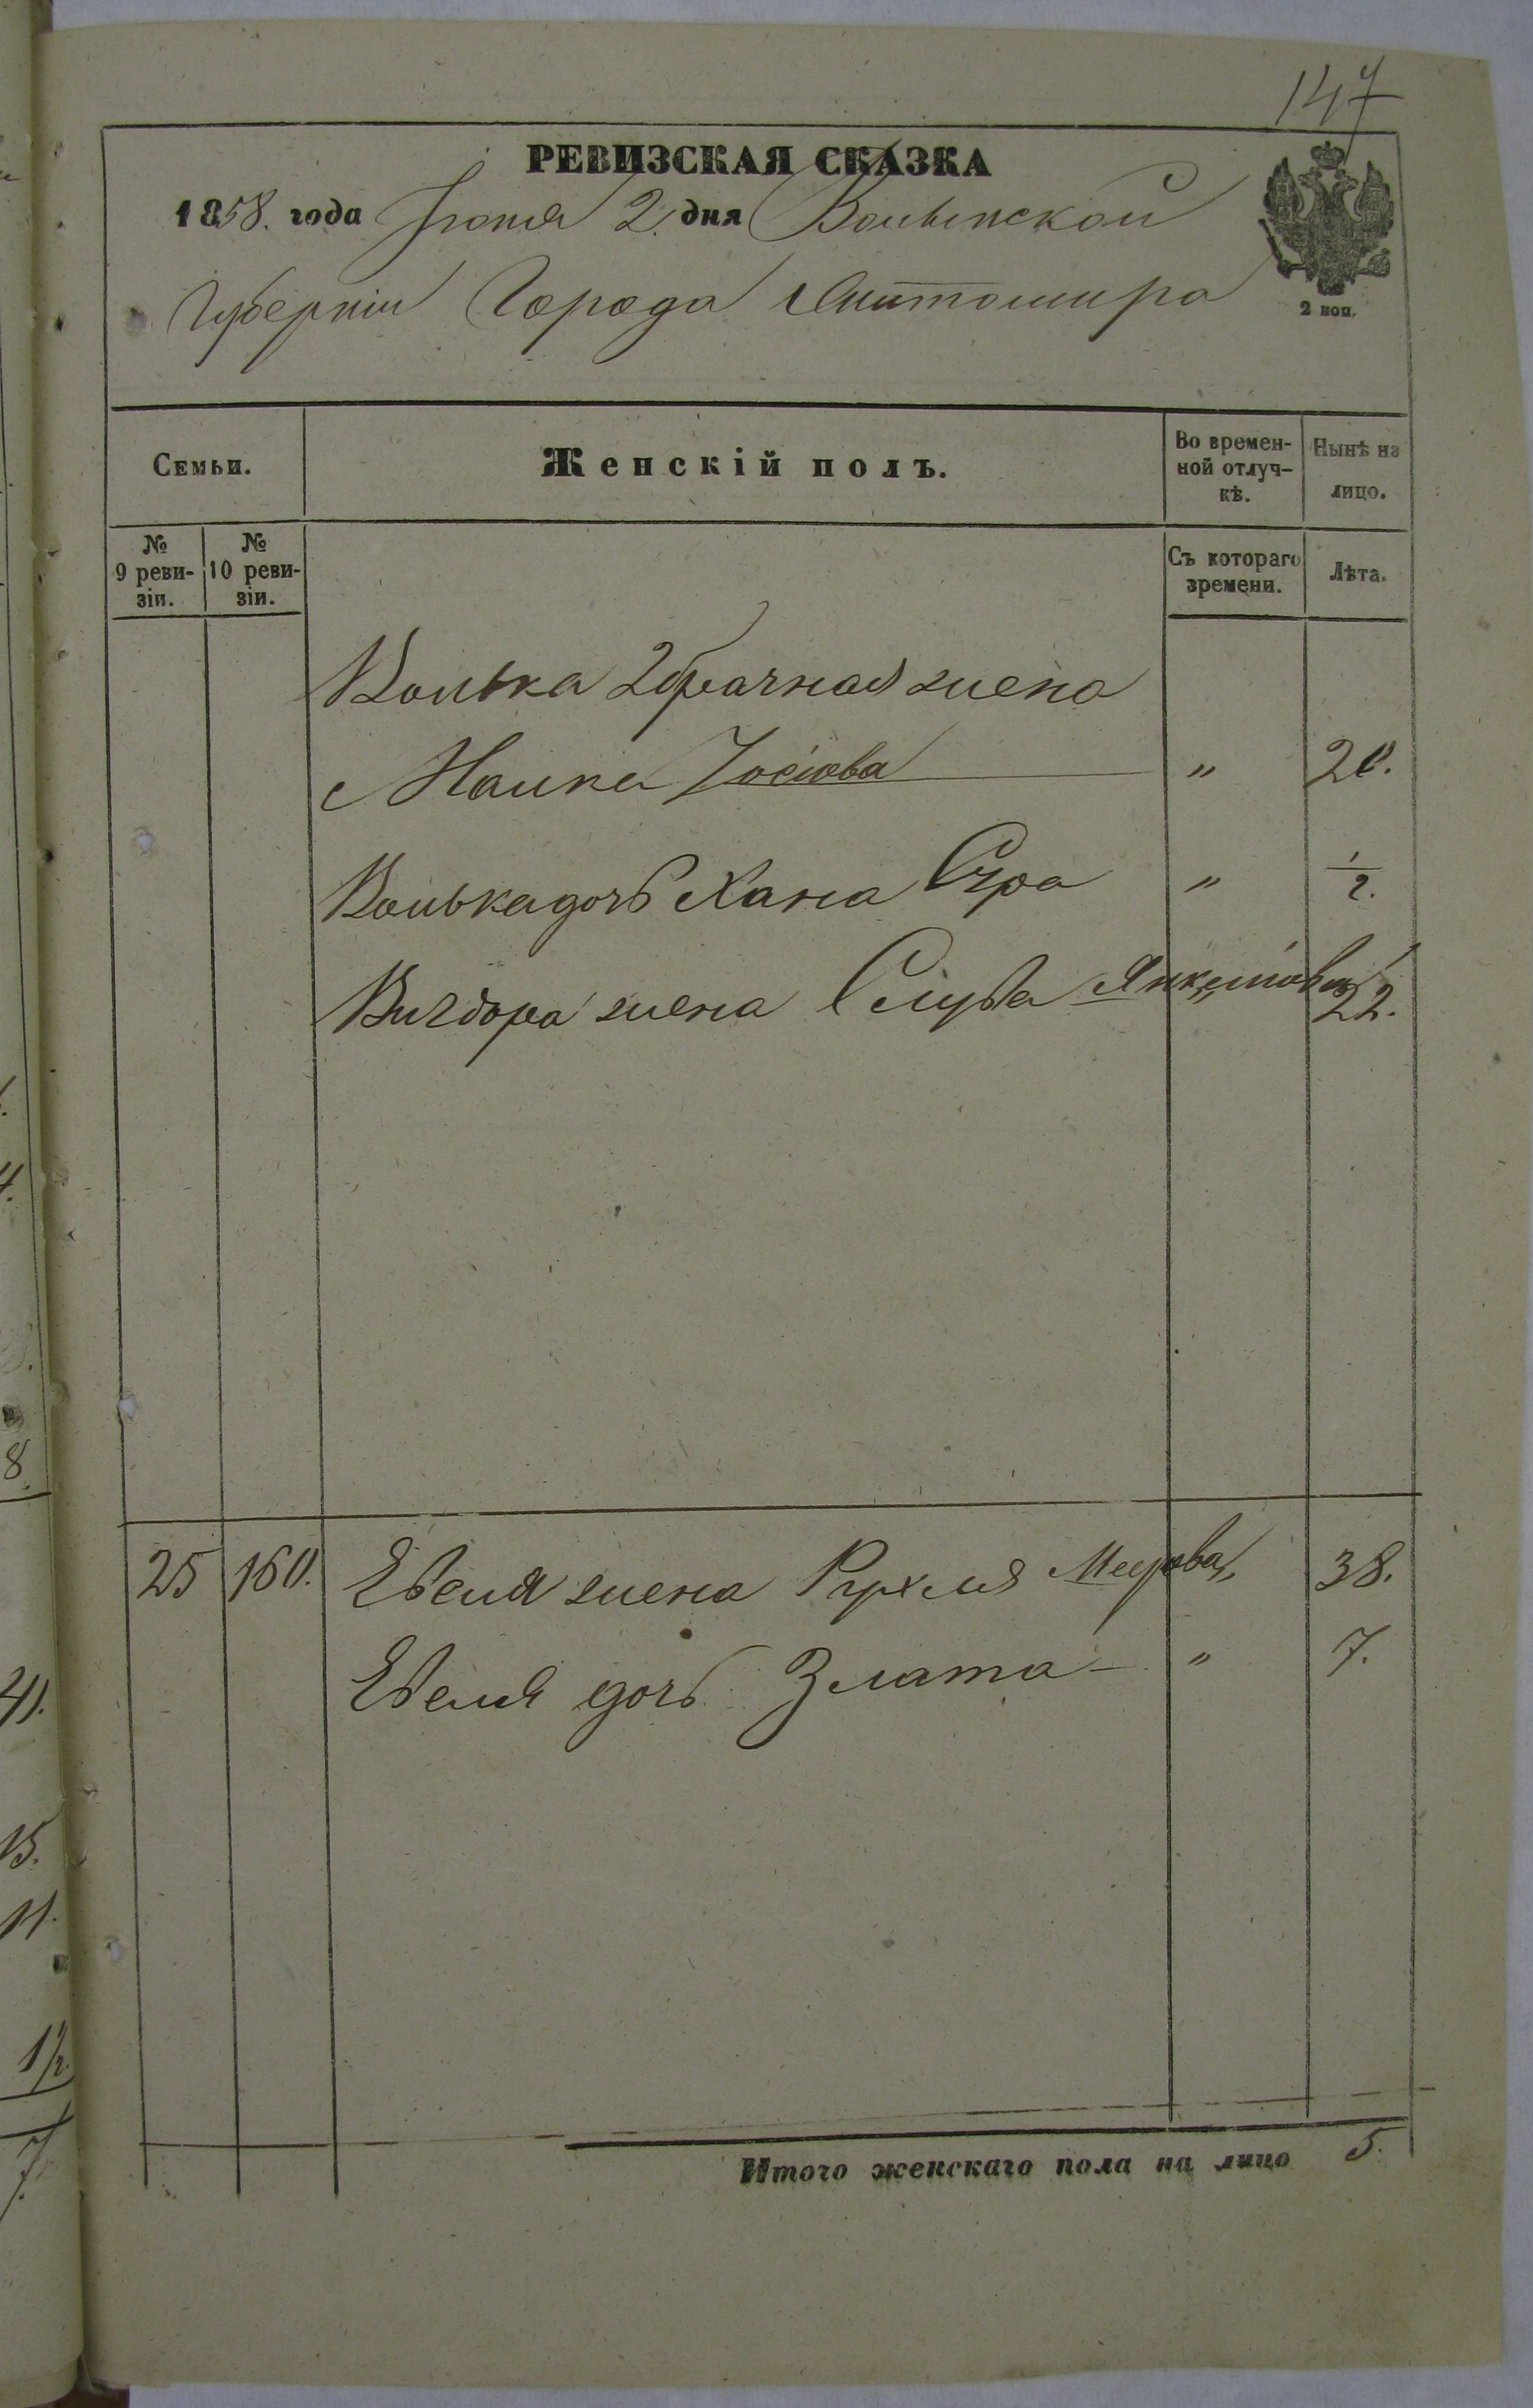 147
РЕВИЗСКАЯ СКАЗКА
1858. года Іюня 2. дня Волынской
2 коп.
Губерніи Города Житомира
Семьи.
Женскій полъ.
Во времен-
ной отлуч-
кѣ.
Нынѣ на
лицо.
№
9 реви-
зіи.
№
10 реви-
зіи.
Съ котораго
времени.
Лѣта.
Волька 2 брачная жена
Малка Іосіова " 20.
Волька дочь Хана Сура " 1/2.
Вигдора жена Слува Янкелiова " 22.
25 160. Евеля жена Рухля Меерова " 38.
Евеля дочь Злата - " 7.
Итого женскаго пола на лицо 5.
8.
41.
15.
11.
1/2.
7.